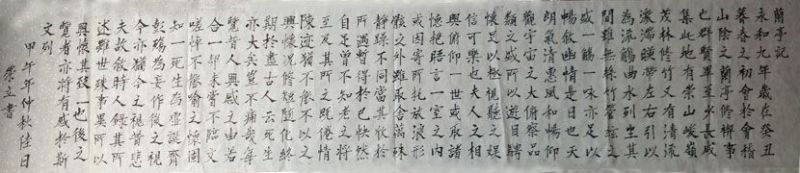 蘭亭記
永和九年歲在癸丑
暮春之初會於會稽
山陰之蘭亭脩禊事
也群賢畢至少長咸
集此地有崇山峻嶺
茂林脩竹又有清流
激湍暎帶左右引以
為流觴曲水列坐其
間雖無絲竹管弦之
盛一觴一詠亦足以
暢敘幽情是日也天
朗氣清惠風和暢仰
觀宇宙之大俯察品
類之盛所以遊目騁
懷足以極視聽之娛
信可樂也夫人之相
與俯仰一世或取諸
懷抱晤言一室之內
或因寄所托放浪形
骸之外雖取舍萬殊
靜躁不同當其欣於
所遇暫得於己快然
自足曾不知老之將
至及其所之既倦情
陳迹猶不能不以之
興懷況修短隨化終
期於盡古人云死生
亦大矣豈不痛哉每
覽昔人興感之由若
合一契未嘗不臨文
嗟悼不能喻之懷固
知一死生為虛誕齊
彭殤為妄作後之視
今亦猶今之視昔悲
夫故敘時人錄其所
述雖世殊事異所以
興懷其致一也後之
覽者亦將有感於斯
文列
甲午年仲秋佳日
書